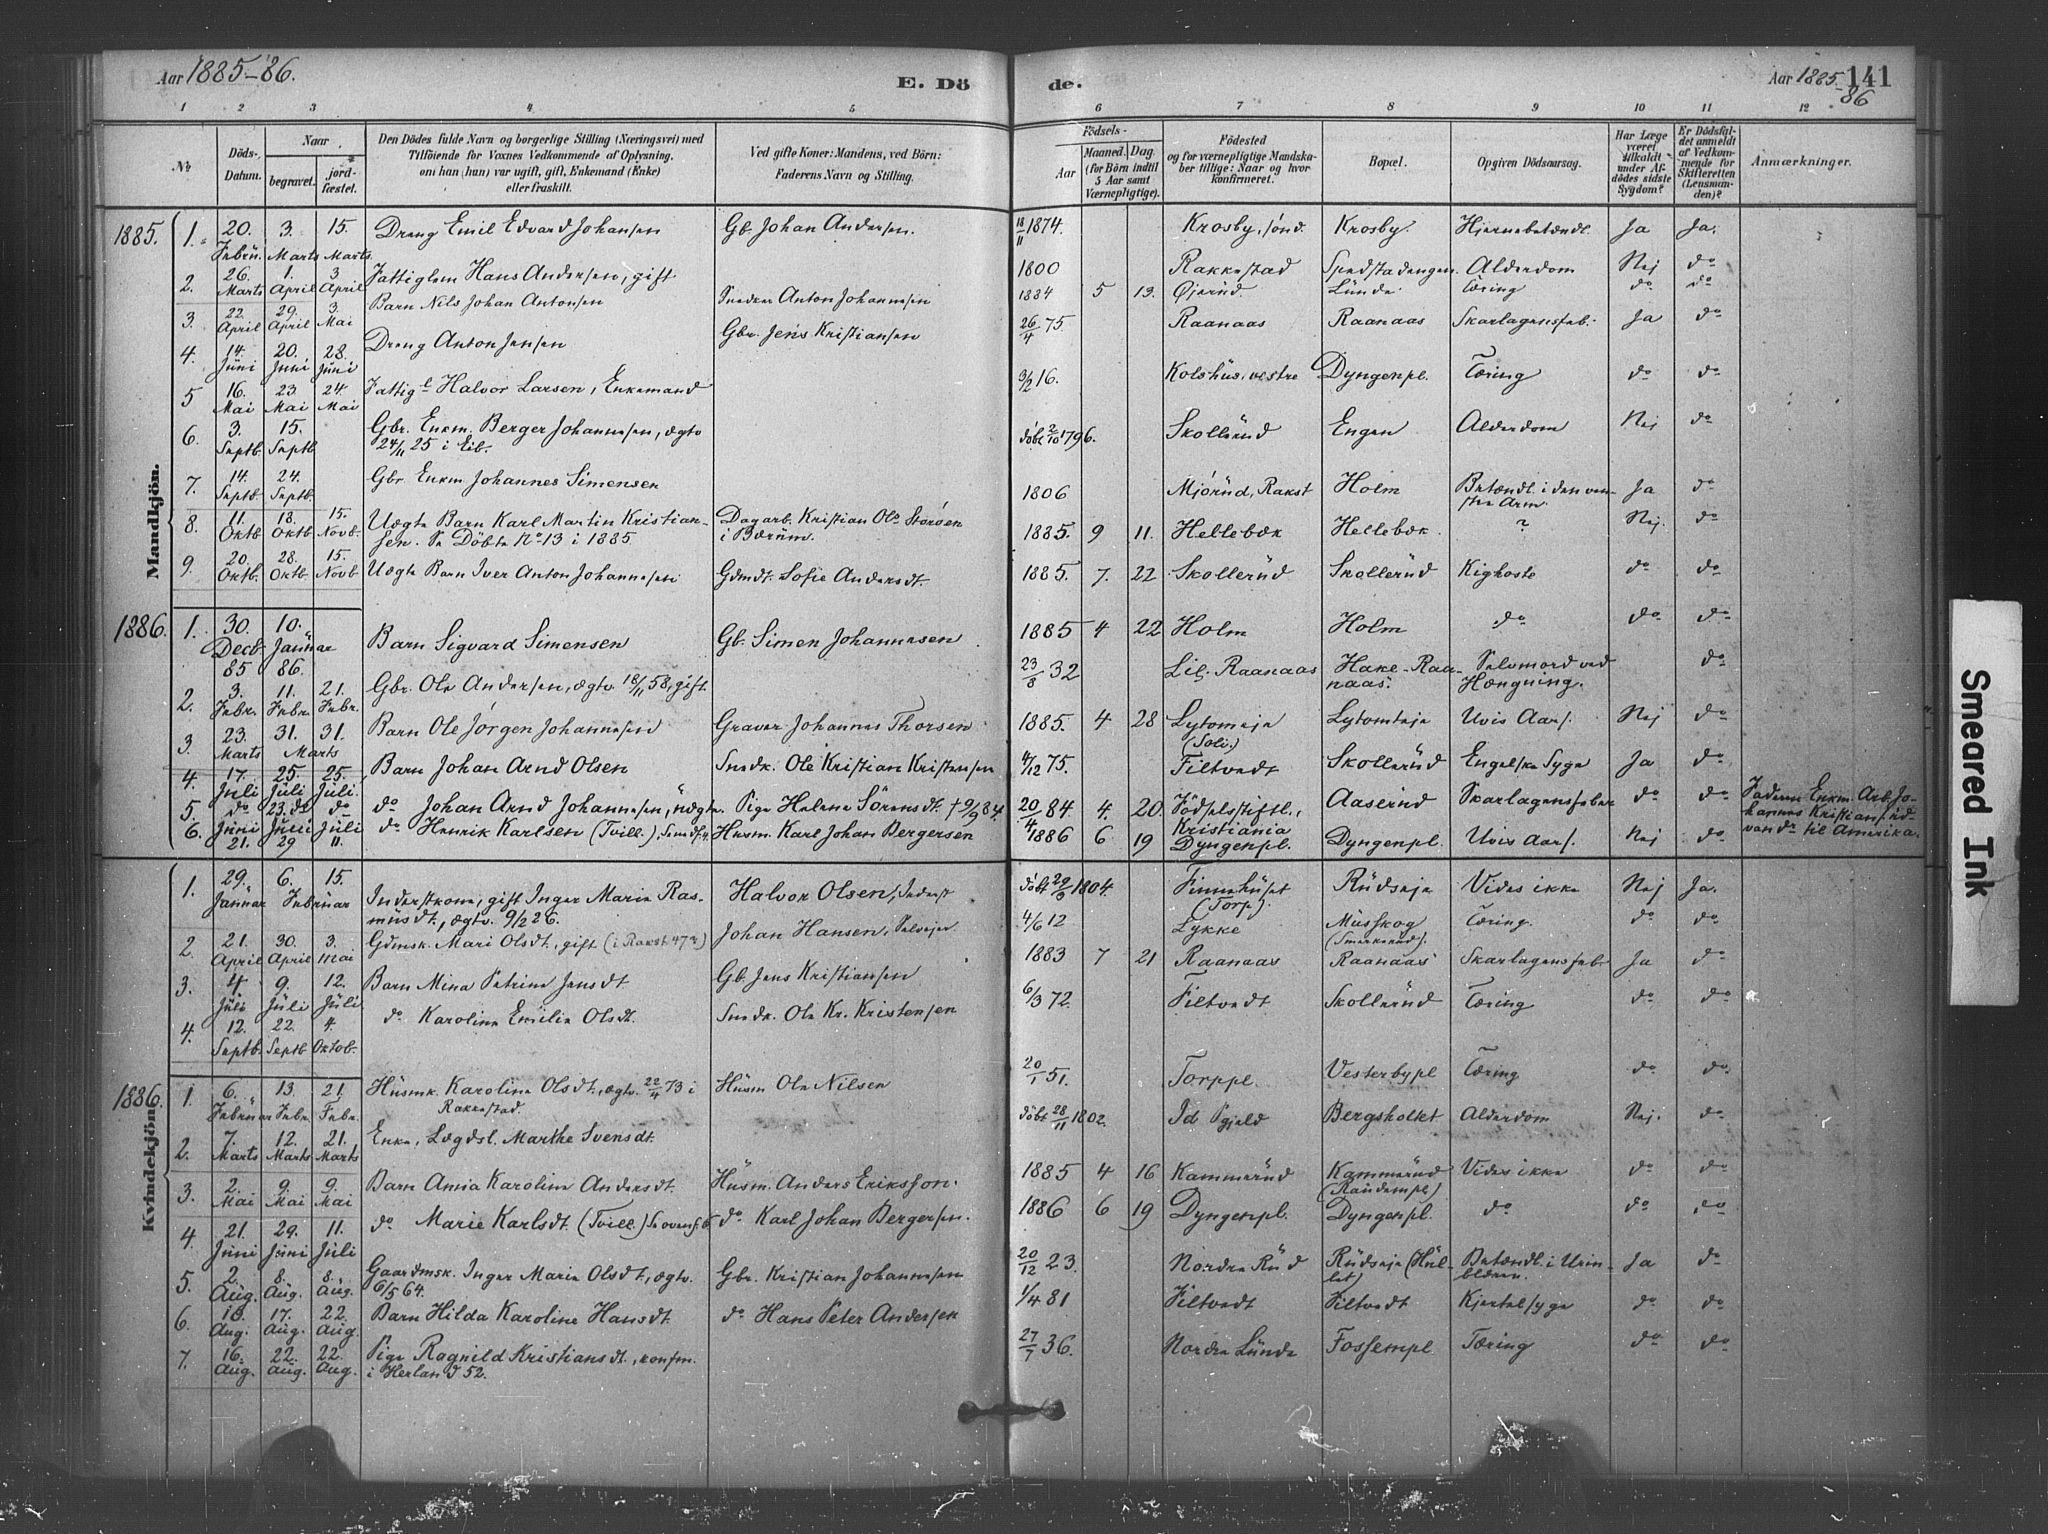 Aar 1885-86.
E. Dö
de.
Aar 1885-86
141
1 2 3 4 5 6 7 8 9 10 11 12
No
Döds-Datum.
Naar
begravet.
jord-fæstet.
Den Dödes fulde Navn og borgerlige Stilling (Næringsvei) med
Tilföiende for Voxnes Vedkommende af Oplysning,
om han (hun) var ugift, gift, Enkemand (Enke)
eller fraskilt.
Ved gifte Koner: Mandens, ved Börn:
Faderens Navn og Stilling.
Födsels-
Aar
Maaned. Dag.
(for Börn indtil
5 Aar samt
Værnepligtige).
Födested
og for værnepligtige Mandska-
ber tillige: Naar og hvor
konfirmeret.
Bopæl.
Opgiven Dödsaarsag.
Har Læge
været
tilkaldt
under Af-
dödes sidste
Sygdom?
Er Dödsfal-
det anmeldt
af Vedkom-
mende for
Skifteretten
(Lensman-
den)?
Anmærkninger.
Mandkjön.
1885. 1. 20. Febru. 3. Marts 15. Marts. Dreng Emil Edvard Johansen Gb. Johan Andersen. 18/11 1874. Krosby, sönd. Krosby. Hjernebetændl. Ja Ja.
2. 26. Marts 1. April 3 April Fattiglem Hans Andersen, gift 1800 Rakkestad Alderdom Nej do
3. 22. April 29. April 3. Mai Barn Nils Johan Antonsen Snedker Anton Johannesen 1884 5 13. Øjerud. Lunde. Tæring do do
4. 14. Juni 20. Juni 28. Juni Dreng Anton Jensen Gbr. Jens Kristiansen 26/4 75. Raanaas Raanaas Skarlagensfeb. Ja do
5 16. Mai 23. Mai 24. Mai Fattigl Halvor Larsen, Enkemand 3/2 16. Kolshus, vestre Dyngenpl. Tæring do do
6. 3. Septb 15. Septb Gbr. Enkm. Berger Johannesen, ægtv
24/11 25 i Eib. döbt 2/10 1796. Skollerud Engen Alderdom Nej do
7. 14. Septb. 24. Septb. Gbr. Enkm. Johannes Simensen 1806 Mjörud, Rakst Holm Betændl. i den ven-
stre Arm. Ja do
8. 11. Oktb 18. Oktb 15. Novb. Uægte Barn Karl Martin Kristian-
sen. Se Döbte No 13 i 1885 Dagarb. Kristian Ols Storöen
i Bærum. 1885. 9 11. Hellebæk Hellebæk ? Nej. do
9. 20. Oktb. 28. Oktb. 15. Novb Uægte Barn Iver Anton Johannesen Gdmdt. Sofie Andersdt. 1885. 7. 22 Skollerud Skollerud Kighoste do do
1886. 1. 30. Decb 85 10. Januar 86. Barn Sigvard Simensen Gb. Simen Johannesen 1885 4 22 Holm Holm do do do
2. 3. Febr. 11. Febr. 21. Febr. Gbr. Ole Andersen, ægtv. 18/11 58, gift. 23/8 32 Lil. Raanaas Hake-Raa-
naas. Selvmord ved
Hængning. do
3. 23. Marts 31. Marts 31. Barn Ole Jørgen Johannesen Graver Johannes Thorsen 1885. 4 28 Lytomeja
(Soli.) Lytomteja Uvis Aars. Nej do
4. 17. Juli 25. Juli 25. Juli. Barn Johan Arnd Olsen Snedk. Ole Kristian Kristensen 4/12 75. Filtvedt Skollerud Engelske Syge Ja do
5. do 23. do do do Johan Arnd Johannesen, uægte. Pige Helene Sörensdt. † 9/9 84. 20/4 84. 4. 20. Födselsstiftl.,
Kristiania Aaserud Skarlagensfeber do do Faderen Enkm. Arb. Jo-
hannes Kristians. ud-
vandr til Amerika.
6. Juni 21. Juni 29 Juli 11. do Henrik Karlsen (Tvill.). Se nedf. 4. Husm. Karl Johan Bergersen 1886 6 19 Dyngenpl. Dyngenpl. Uvis Aars. Nej do
Kvindekjön.
1. 29. Januar 6. Februar 15. Inderstkone, gift Inger Marie Ras-
musdt., ægtv. 9/2 26. Halvor Olsen, Inderst döbt 29/3 1804 Finnehuset
(Torp). Rudseja Vides ikke Nej Ja.
2. 21. April 30. April 3. Mai Gdmsk. Mari Olsdt., gift (i Rakst. 47?) Johan Hansen, Selvejer 4/6 12 Lykke Musskog Tæring. do do
3. 4 Juli 9. Juli 12. Juli Barn Mina Petrine Jensdt Gb. Jens Kristiansen 1883 7 21 Raanaas Raanaas Skarlagensfeb. Ja do
4. 12. Septb. 22. Septb 4. Oktob. do Karoline Emilie Olsdt. Snedk. Ole Kr. Kristensen 6/3 72. Filtvedt Skollerud Tæring do do
1886. 1. 6. Februar 13. Febr. 21. Febr. Husmk. Karoline Olsdt., ægtv. 22/4 73 i
Rakkestad. Husm Ole Nilsen 20/1 51. Torppl. Vesterbypl Tæring do do
2. 7. Marts 12. Marts 21. Marts Enke, Lægdsl. Marthe Svensdt. döbt 28/11 1802. Id Pgjeld Bergsholtet Alderdom Nej. do
3. 2. Mai 9. Mai 9. Mai Barn Anna Karoline Andersdt. Husm. Anders Eriksson. 1885 4 16 Kammerud Kammerud Vides ikke do do
4 21. Juni 29. Juni 11. Juli do Marie Karlsdt. (Tvill.) Se ovenf. 6. do Karl Johan Bergersen. 1886 6 19 Dyngenpl. Dyngenpl. do do do
5. 2. Aug. 8. Aug. 8. Aug. Gaardmsk. Inger Marie Olsdt., ægtv.
6/5 64. Gbr. Kristian Johannesen 20/12 23. Nordre Rud Rudseja (Hul-
let) Betændl. i Urin-
blæren. Ja do
6. 10. Aug. 17. Aug. 22. Aug. Barn Hilda Karoline Hansdt. do Hans Peter Andersen 1/4 81 Filtvedt Filtvedt Kjertelsyge do do
7. 16. Aug. 22. Aug. 22. Aug. Pige Ragnild Kristiansdt., konfm.
i Herland 52. 27/7 36. Nordre Lunde Fossempl. Tæring do do
Smeared Ink